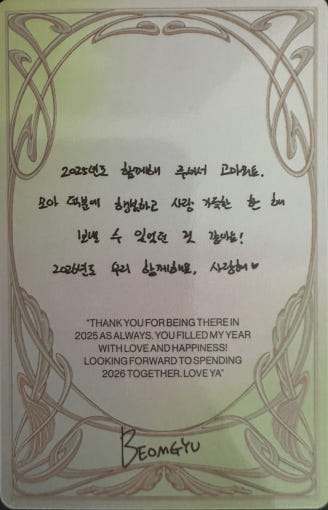 2025년도 함께해 주어서 고마워요.
모아 덕분에 행복하고 사랑 가득한 한 해
보낼 수 있었던 것 같아요!
2026년도 우리 함께해요, 사랑해♥
"THANK YOU FOR BEING THERE IN
2025 AS ALWAYS. YOU FILLED MY YEAR
WITH LOVE AND HAPPINESS!
LOOKING FORWARD TO SPENDING
2026 TOGETHER. LOVE YA"
BEOMGYU